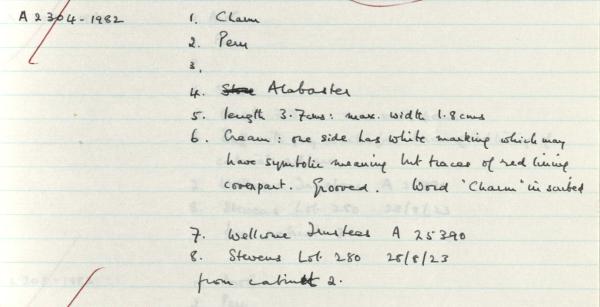 A 2304-1982 1. Charm
2. Peru
3.
4. Stone Alabaster
5. length 3.7cms: max. width 1.8cms
6. Cream: one side has white marking which may
have symbolic meaning but traces of red lining
coverpart. Grooved. Word "Charm" in scribed
7. Wellcome Trustees A 25390
8. Stevens Lot 280 28/8/23
from cabinett 2.